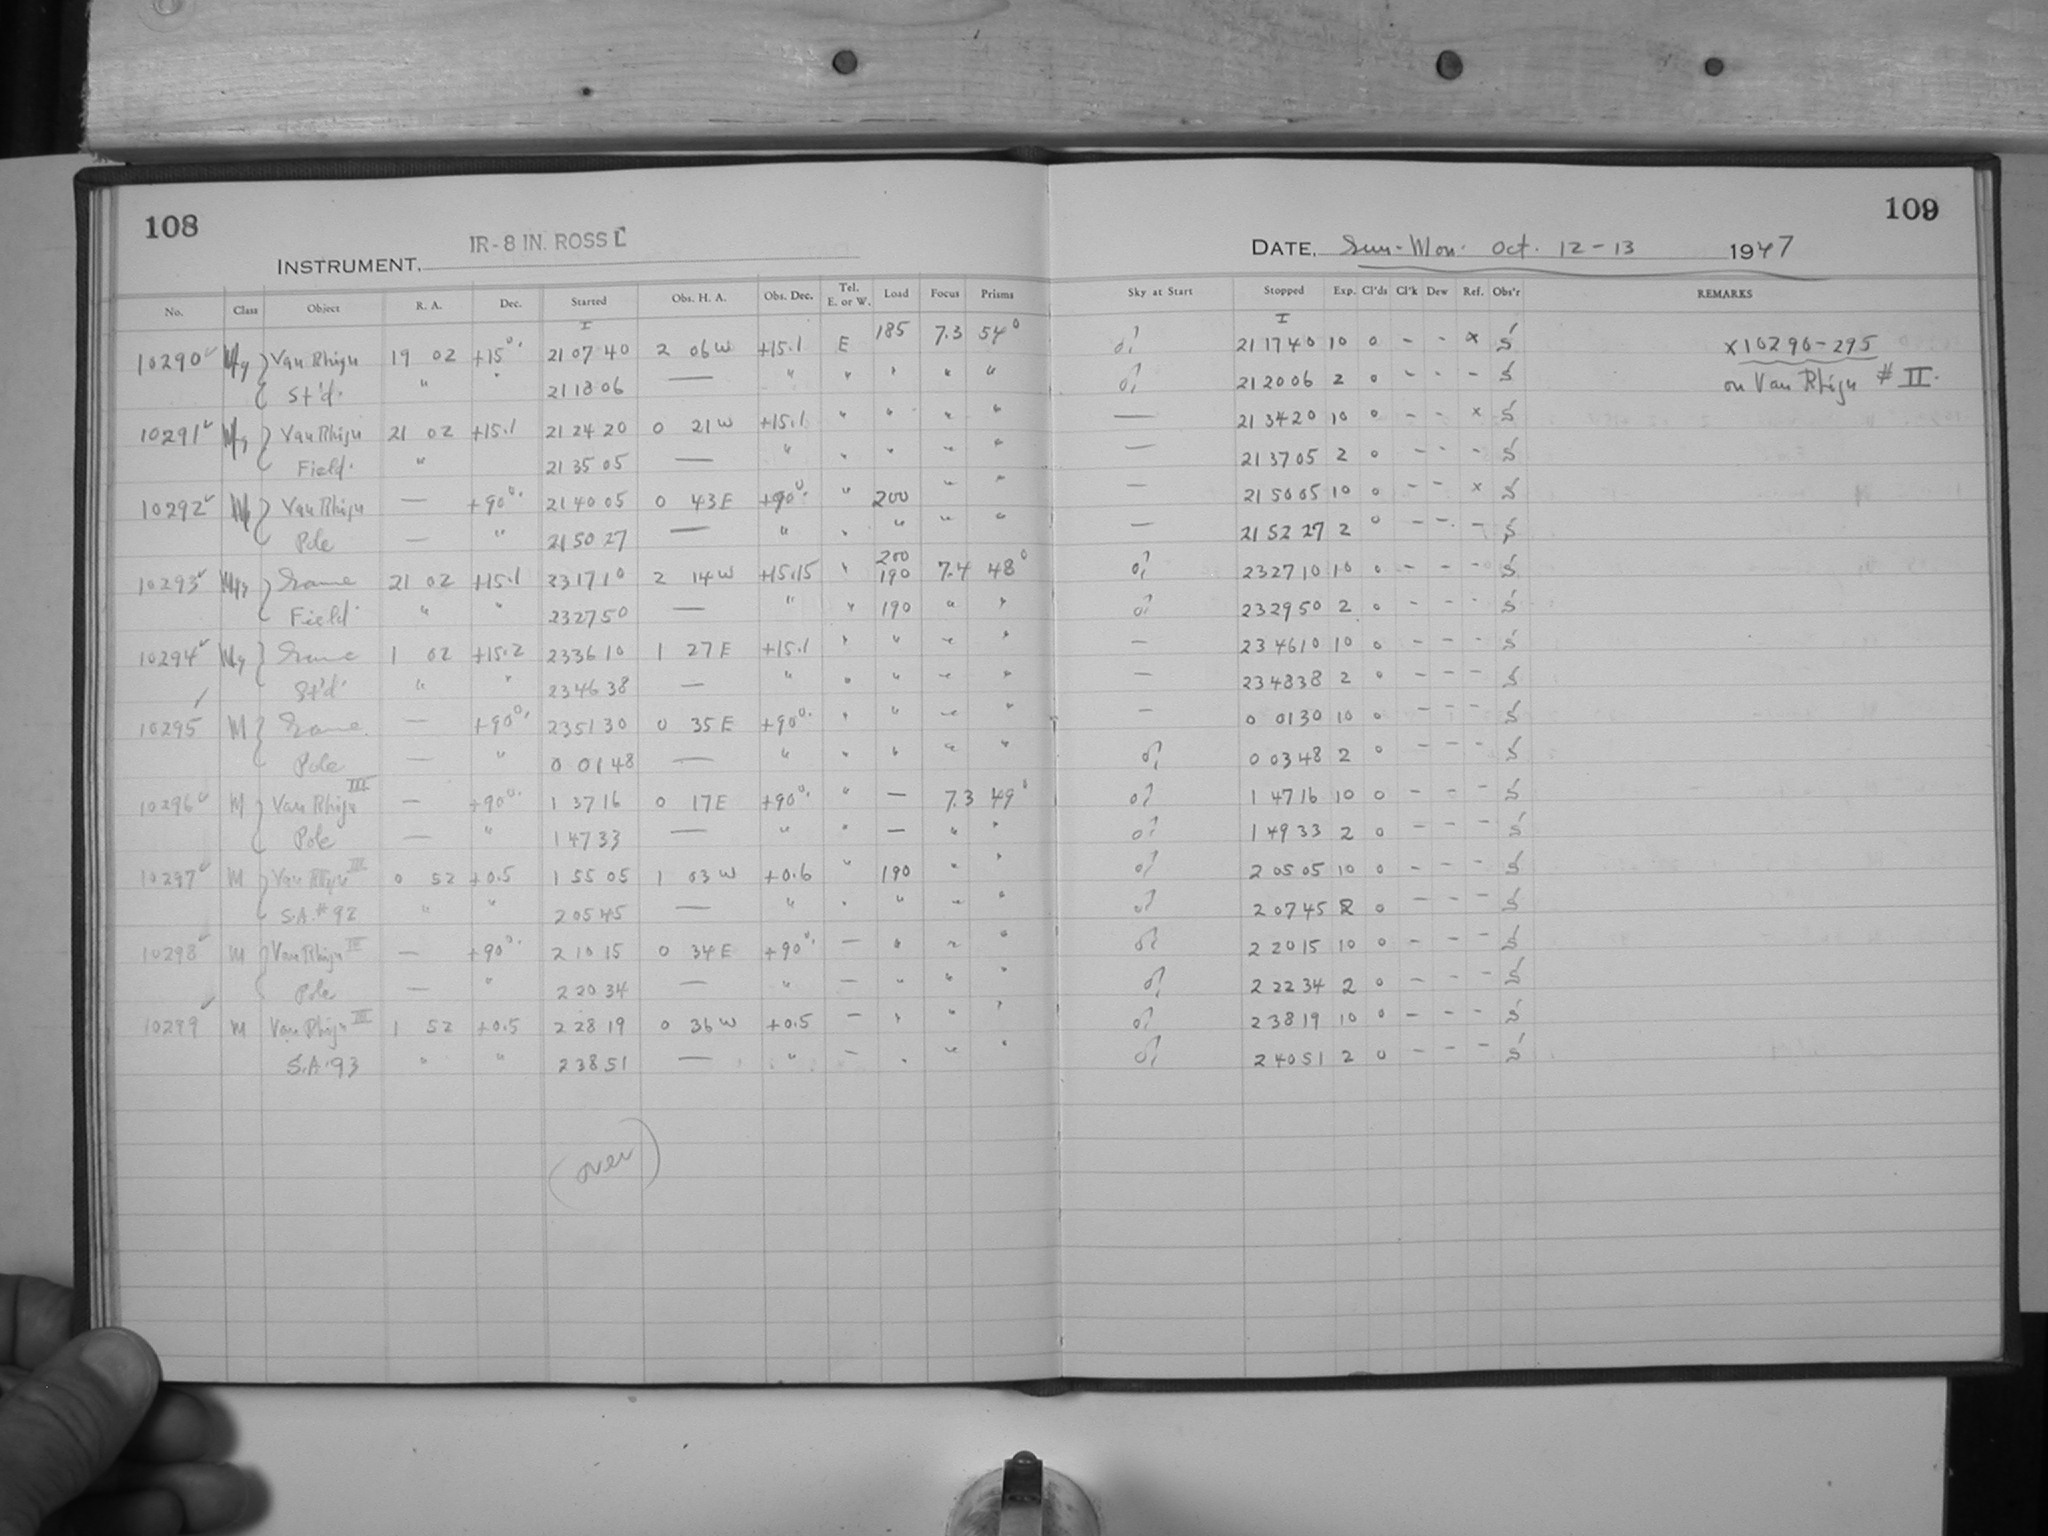 108
109
IR-8 IN. ROSS C
INSTRUMENT,
DATE, Sun-Mon. Oct. 12-13 1947
No. Class Object R. A. Dec. Started Obs. H. A. Obs. Dec. Tel. E. or W. Load Focus Prisms Sky at Start Stopped Exp. Cl'ds Cl'k Dew Ref. Obs'r REMARKS
10290 Van Rhijn 19 02 +15°. 21 07 40 2 06W +15.1 E 185 7.3 54° 21 17 40 10 0 - - x S x10290-295
St'd. " " 21 18 06 — " " " " " 21 20 06 2 0 - - - S on Van Rhijn # II.
10291 Van Rhijn 21 02 +15.1 21 24 20 0 21W +15.1 " " " " — 21 34 20 10 0 - - x S
Field. " 21 35 05 — " " " " " — 21 37 05 2 0 - - - S
10292 Van Rhijn — +90°. 21 40 05 0 43E +90°. " 200 " " — 21 50 05 10 0 - - x S
Pole — " 21 50 27 — " " " " " — 21 52 27 2 0 - - - S
10293 Same 21 02 +15.1 23 17 10 2 14W +15.15 " 200 190 7.4 48° 23 27 10 10 0 - - - S
Field " " 23 27 50 — " " 190 " " 23 29 50 2 0 - - - S
10294 Same 1 02 +15.2 23 36 10 1 27E +15.1 " " " " — 23 46 10 10 0 - - - S
St'd. " " 23 46 38 — " " " " " — 23 48 38 2 0 - - - S
10295 M Same — +90°. 23 51 30 0 35E +90°. " " " " — 0 01 30 10 0 - - - S
Pole — " 0 01 48 — " " " " " 0 03 48 2 0 - - - S
10296 M Van Rhijn III — +90°. 1 37 16 0 17E +90°. " — 7.3 49° 1 47 16 10 0 - - - S
Pole — " 1 47 33 — " " — " " 1 49 33 2 0 - - - S
10297 M Van Rhijn III 0 52 +0.5 1 55 05 1 03W +0.6 " 190 " " 2 05 05 10 0 - - - S
S.A.#92 " " 2 05 45 — " " " " " 2 07 45 2 0 - - - S
10298 M Van Rhijn III — +90°. 2 10 15 0 34E +90°. — " " " 2 20 15 10 0 - - - S
Pole — " 2 20 34 — " — " " " 2 22 34 2 0 - - - S
10299 M Van Rhijn III 1 52 +0.5 2 28 19 0 36W +0.5 — " " " 2 38 19 10 0 - - - S
S.A.93 " " 2 38 51 — " — " " " 2 40 51 2 0 - - - S
(over)